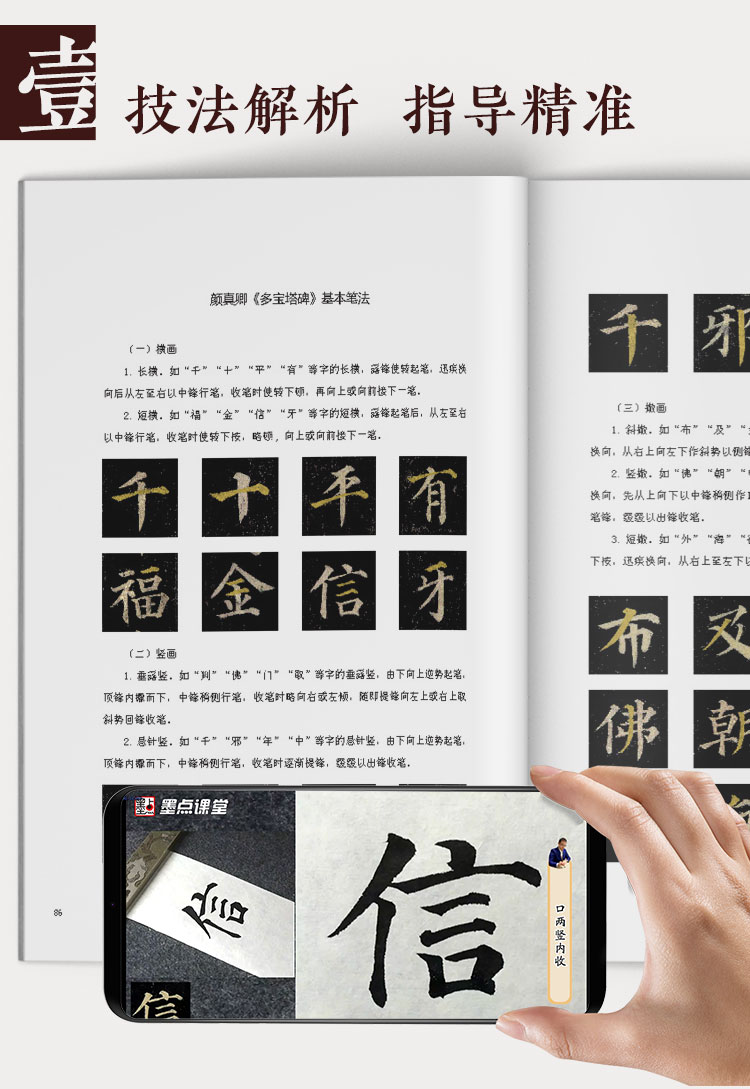 壹
技法解析 指导精准
颜真卿《多宝塔碑》基本笔法
（一）横画
1. 长横。如“千”“十”“平”“有”等字的长横，露锋使转起笔，迅疾换
向后从左至右以中锋行笔，收笔时使转下顿，再向上或向前接下一笔。
2. 短横。如“福”“金”“信”“牙”等字的短横，露锋起笔后，从左至右
以中锋行笔，收笔时使转下按，略顿，向上或向前接下一笔。
千 十 平 有
福 金 信 牙
（二）竖画
1. 垂露竖。如“判”“佛”“门”“取”等字的垂露竖，由下向上逆势起笔，
顶锋内擫而下，中锋稍侧行笔，收笔时略向右或左倾，随即提锋向左上或右上取
斜势回锋收笔。
2. 悬针竖。如“千”“邪”“年”“中”等字的悬针竖，由下向上逆势起笔，
顶锋内擫而下，中锋稍侧行笔，收笔时逐渐提锋，缓缓以出锋收笔。
86
千 邪
（三）撇画
1. 斜撇。如“布”“及”
换向，从右上向左下作斜势以侧锋
2. 竖撇。如“佛”“朝”
换向，先从上向下以中锋稍侧作
笔锋，缓缓以出锋收笔。
3. 短撇。如“外”“海”
下按，迅疾换向，从右上至左下以
布 及
佛 朝
墨点课堂
信
信
信
口两竖内收